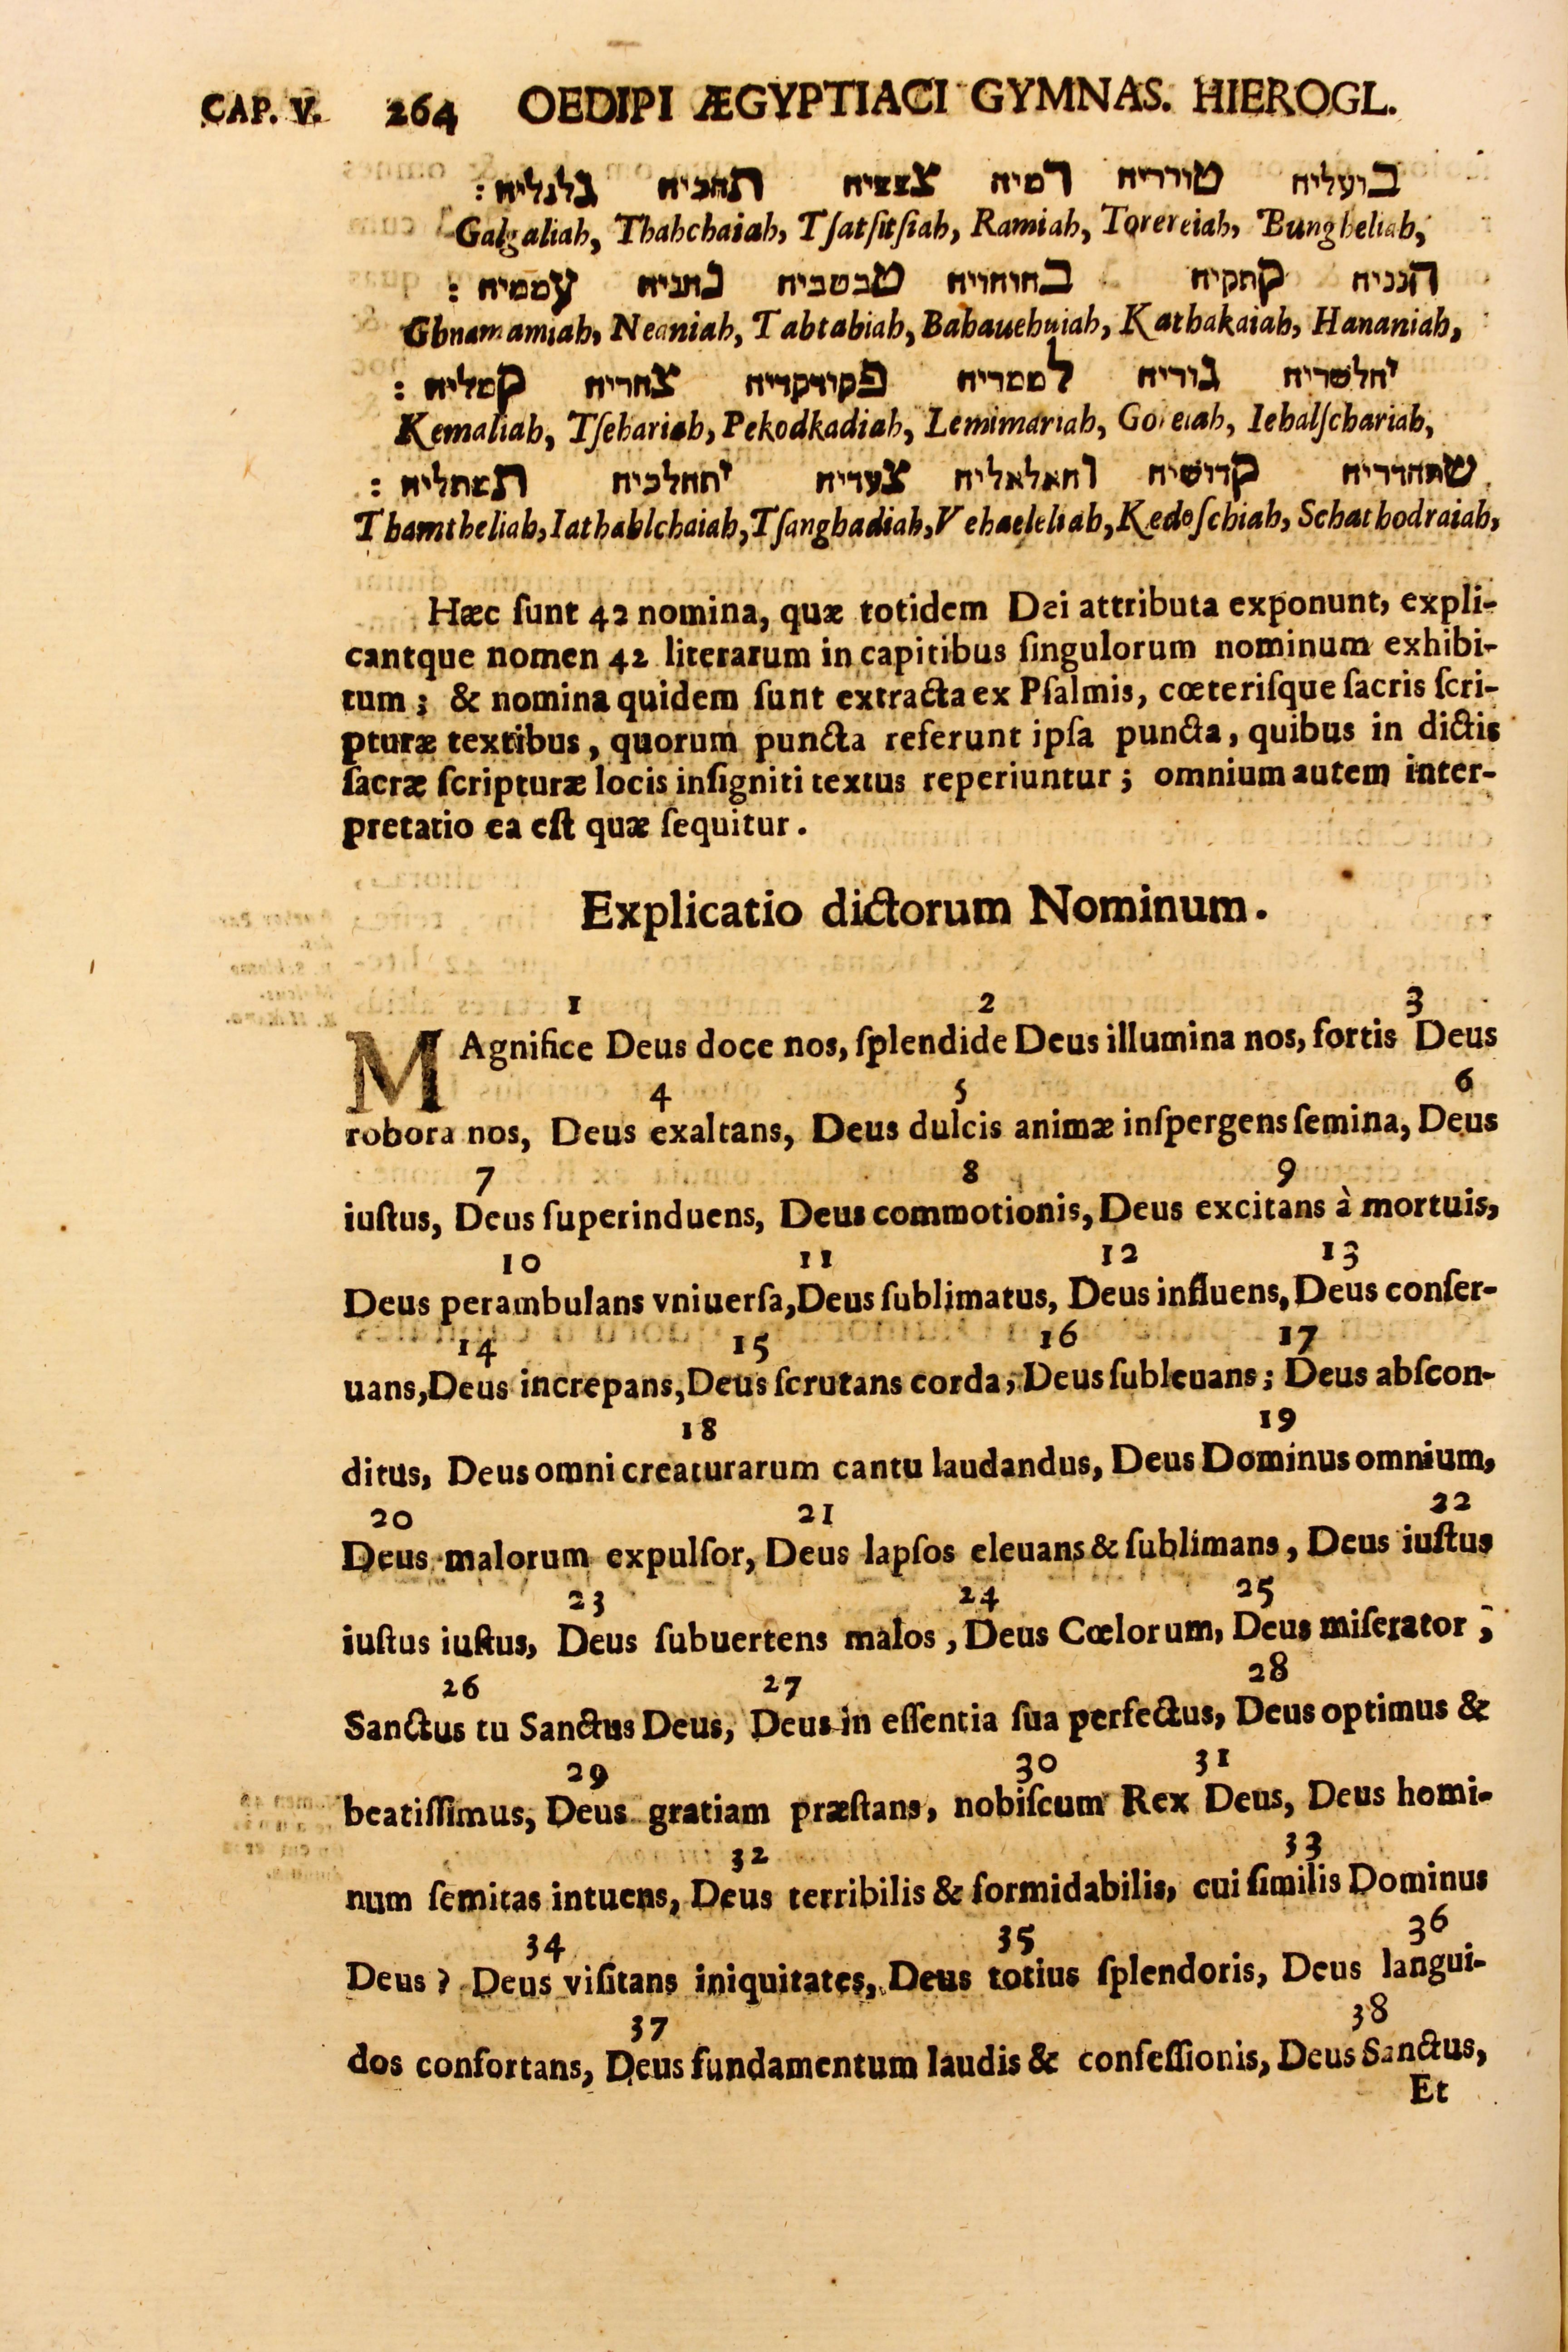 CAP. V. 264 OEDIPI ÆGYPTIACI GYMNAS. HIEROGL.
בועליה טורריה רמיה צצציה תחכיה גלגליה :
Galgaliah, Thahchaiah, Tſatſitſiah, Ramiah, Torereiah, Bungheliah,
הנניה קתקיה בחוחויה טבטביה נתניה עממיה :
Ghnamamiah, Neaniah, Tabtabiah, Bahauehuiah, Kathakaiah, Hananiah,
יחלשריה גוריה לממריה פקודקדיה צהריה קמליה :
Kemaliah, Tſehariah, Pekodkadiah, Lemimariah, Goreiah, Iehalſchariah,
שתהדריה קדושיה והאלאליה צעדיה יתהלכיה תמתליה :
Thamtheliah, Iathahlchaiah, Tſanghadiah, Vehaeleliah, Kedoſchiah, Schathodraiah,
Hæc ſunt 42 nomina, quæ totidem Dei attributa exponunt, expli-
cantque nomen 42 literarum in capitibus ſingulorum nominum exhibi-
tum ; & nomina quidem ſunt extracta ex Pſalmis, cœteriſque ſacris ſcri-
pturæ textibus, quorum puncta referunt ipſa puncta, quibus in dictis
ſacræ ſcripturæ locis inſigniti textus reperiuntur ; omnium autem inter-
pretatio ea eſt quæ ſequitur .
Explicatio dictorum Nominum .
1 2 3
MAgnifice Deus doce nos, ſplendide Deus illumina nos, fortis Deus
4 5 6
robora nos, Deus exaltans, Deus dulcis animæ inſpergens ſemina, Deus
7 8 9
iuſtus, Deus ſuperinduens, Deus commotionis, Deus excitans à mortuis,
10 11 12 13
Deus perambulans vniuerſa, Deus ſublimatus, Deus influens, Deus conſer-
14 15 16 17
uans, Deus increpans, Deus ſcrutans corda, Deus ſubleuans ; Deus abſcon-
18 19
ditus, Deus omni creaturarum cantu laudandus, Deus Dominus omnium,
20 21 22
Deus malorum expulſor, Deus lapſos eleuans & ſublimans, Deus iuſtus
23 24 25
iuſtus iuſtus, Deus ſubuertens malos, Deus Cœlorum, Deus miſerator ,
26 27 28
Sanctus tu Sanctus Deus, Deus in eſſentia ſua perfectus, Deus optimus &
29 30 31
beatiſſimus, Deus gratiam præſtans, nobiſcum Rex Deus, Deus homi-
32 33
num ſemitas intuens, Deus terribilis & formidabilis, cui ſimilis Dominus
34 35 36
Deus ? Deus viſitans iniquitates, Deus totius ſplendoris, Deus langui-
37 38
dos confortans, Deus fundamentum laudis & confeſſionis, Deus Sanctus,
Et